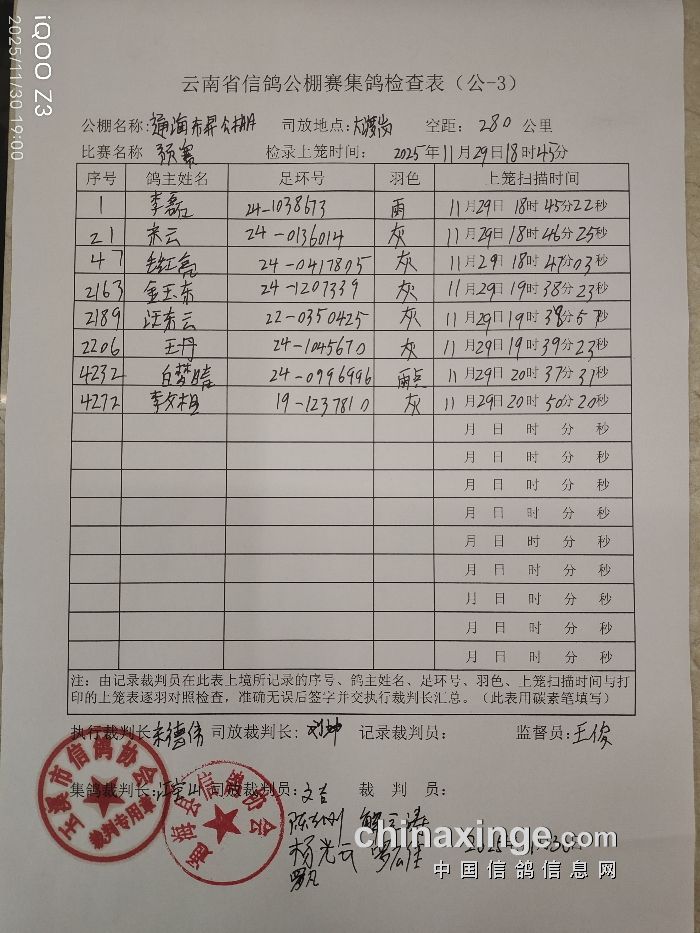 iQOO Z3
2025/11/30 19:00
云南省信鸽公棚赛集鸽检查表（公-3）
公棚名称: 通海东昇公棚 司放地点: 空距: 280 公里
比赛名称 预赛 检录上笼时间: 2025年11月29日18时45分
序号 鸽主姓名 足环号 羽色 上笼扫描时间
1 李磊 24-1038673 雨 11月29日18时45分22秒
21 宋云 24-0136014 灰 11月29日18时46分25秒
47 24-0417805 灰 11月29日18时47分03秒
2163 金玉东 24-1207339 灰 11月29日19时38分23秒
2189 汪东云 22-0350425 灰 11月29日19时38分57秒
2206 王丹 24-1045670 灰 11月29日19时39分23秒
4232 白梦晴 24-0996996 雨点 11月29日20时37分37秒
4272 李文相 19-1237810 灰 11月29日20时50分20秒
月 日 时 分 秒
月 日 时 分 秒
月 日 时 分 秒
月 日 时 分 秒
月 日 时 分 秒
月 日 时 分 秒
月 日 时 分 秒
月 日 时 分 秒
月 日 时 分 秒
注: 由记录裁判员在此表上境所记录的序号、鸽主姓名、足环号、羽色、上笼扫描时间与打
印的上笼表逐羽对照检查，准确无误后签字并交执行裁判长汇总。（此表用碳素笔填写）
执行裁判长: 宋德伟 司放裁判长: 刘坤 记录裁判员: 监督员: 王俊
集鸽裁判长: 司放裁判员: 文吉 裁 判 员:
玉溪市信鸽协会
裁判专用章
通海县信鸽协会
杨光云
chinaxinge.com
中国信鸽信息网